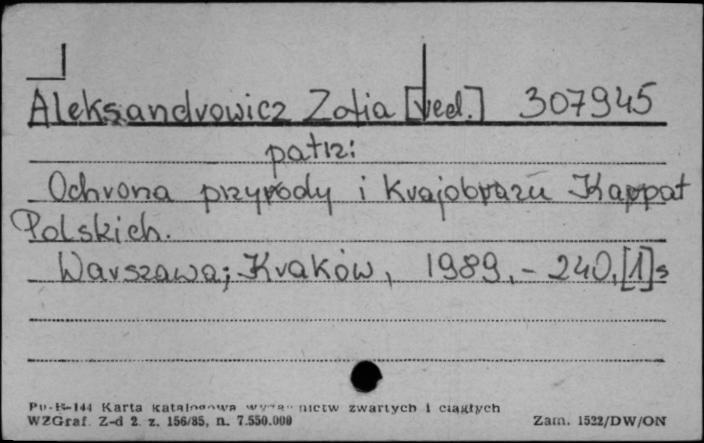 Aleksandrowicz Zofia [red.] 307945
patrz:
Ochrona przyrody i krajobrazu Karpat
Polskich.
Warszawa; Kraków, 1989. – 240, [1] s
Pu-B-144 Karta katalogowa wydawnictw zwartych i ciągłych
WZGraf. Z-d 2. z. 156/85, n. 7.550.000
Zam. 1522/DW/ON